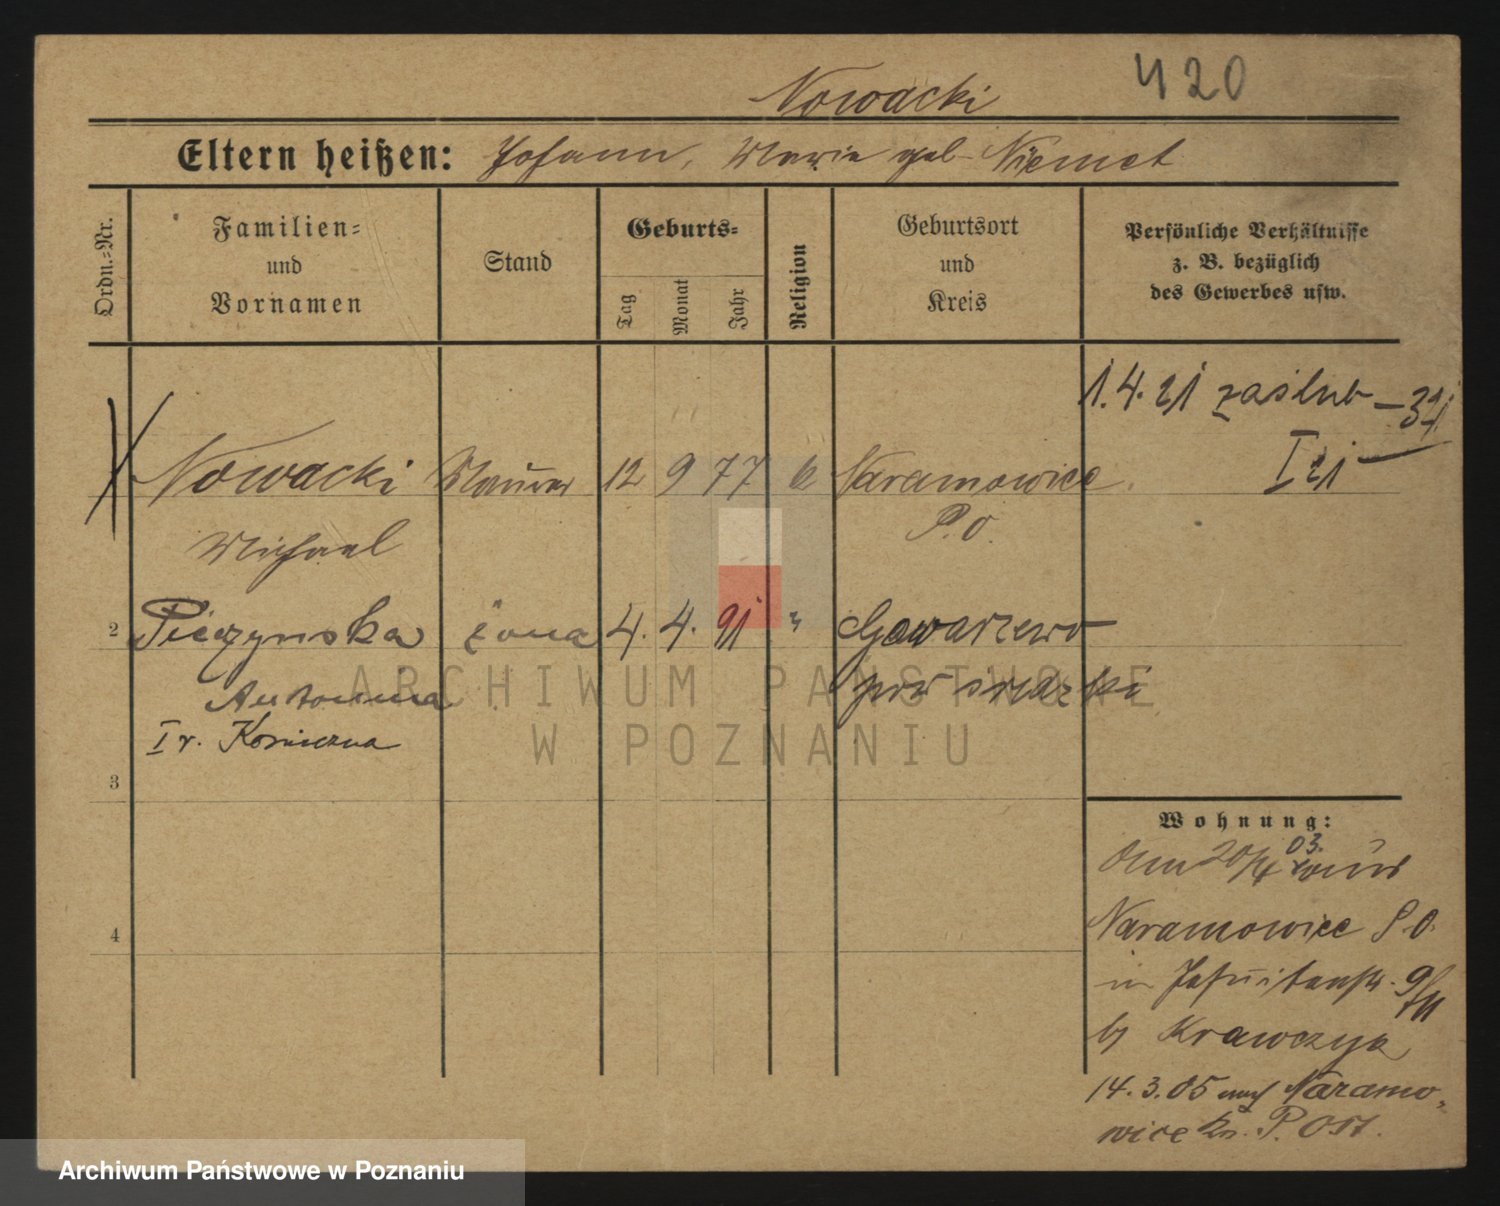 420
Nowacki
Eltern heißen: Johann, Marie geb. Niemet
Ordn.-Nr.
Familien-
und
Vornamen
Stand
Geburts-
Tag
Monat
Jahr
Religion
Geburtsort
und
Kreis
Persönliche Verhältnisse
z. B. bezüglich
des Gewerbes usw.
1.4.21 zaślub
I 21
Nowacki Maurer 12 9 77 k Naramowice
Michael P.O.
2 Pieczynska żona 4. 4. 91 " Gowarzewo
Antonina pow sredzki
I v. Konieczna
3
4
Wohnung:
20/4 03.
Naramowice P.O.
in Jesuitenstr. 9/11
b/ Krawczyk
14.3.05 nach Naramo-
wice Kr. P. Ost.
ARCHIWUM PAŃSTWOWE
W POZNANIU
Archiwum Państwowe w Poznaniu